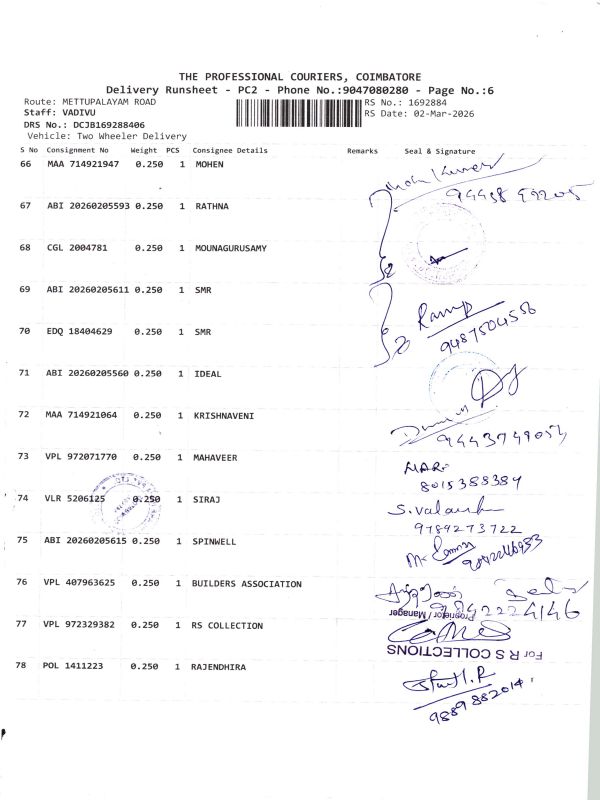 THE PROFESSIONAL COURIERS, COIMBATORE
Delivery Runsheet - PC2 - Phone No.:9047080280 - Page No.:6
Route: METTUPALAYAM ROAD
Staff: VADIVU
DRS No.: DCJB169288406
Vehicle: Two Wheeler Delivery
RS No.: 1692884
RS Date: 02-Mar-2026
S No Consignment No Weight PCS Consignee Details Remarks Seal & Signature
66 MAA 714921947 0.250 1 MOHEN
67 ABI 20260205593 0.250 1 RATHNA
68 CGL 2004781 0.250 1 MOUNAGURUSAMY
69 ABI 20260205611 0.250 1 SMR
70 EDQ 18404629 0.250 1 SMR
9487504556
71 ABI 20260205560 0.250 1 IDEAL
72 MAA 714921064 0.250 1 KRISHNAVENI
73 VPL 972071770 0.250 1 MAHAVEER
8015388384
74 VLR 5206125 0.250 1 SIRAJ
9789273722
75 ABI 20260205615 0.250 1 SPINWELL
76 VPL 407963625 0.250 1 BUILDERS ASSOCIATION
9842224146
77 VPL 972329382 0.250 1 RS COLLECTION
Proprietor / Manager
For R S COLLECTIONS
78 POL 1411223 0.250 1 RAJENDHIRA
9889882014